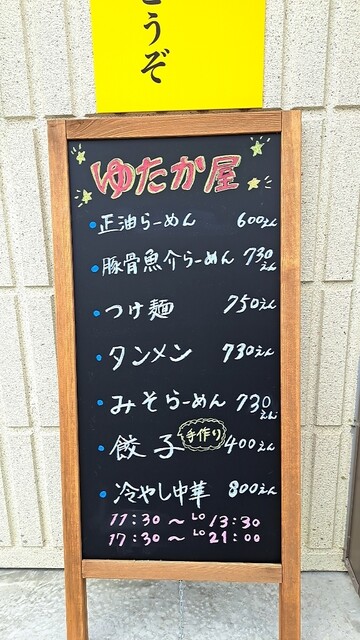 どうぞ
ゆたか屋
正油らーめん 600えん
豚骨魚介らーめん 730えん
つけ麺 750えん
タンメン 730えん
みそらーめん 730えん
餃子 手作り 400えん
冷やし中華 800えん
11:30〜LO 13:30
17:30〜LO 21:00